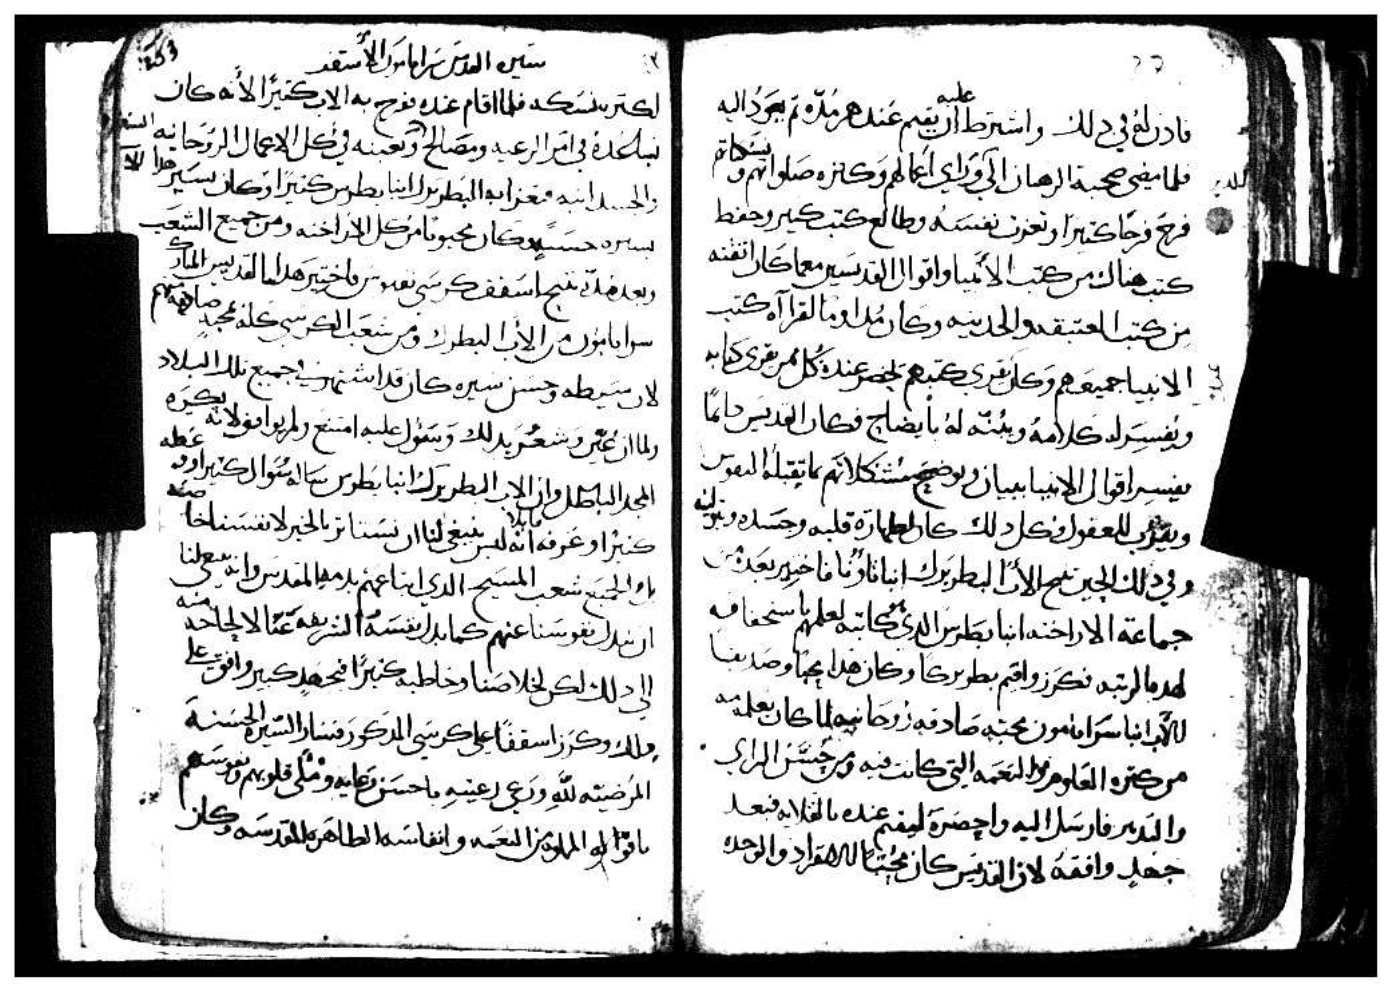 فادن له في دلك واشترط عليه ان يقيم عنده مده تم يعود اليه
فلما مضي صحبة الرهبان الي وراي اعمالهم وكتره صلواتهم ونسكياتهم
فرح فرحًا كتيرا وتعزت نفسه وطالع كتب كتير وحفظ
كتب هناك من كتب الانبيا واقوال القديسين معما كان اتقنه
من كتب العتيقه والحديثه وكان مداوما لقراآه كتب
الانبيا جميعهم وكان يقري كتبهم يحضر عنده كل من يقري كتابه
ويفسر له كلامه ويبينه له بايضاح فكان القديس دايمًا
يفسر اقوال الانبيا ببيان ويوضح مشكلاتهم بما تقبله النفوس
ويقرب للعقول وكل دلك كان لطهارة قلبه وجسده
وفي دلك الحين تنيح الاب البطريرك انبا تاونا فاختير بعده من
جماعة الاراخنه انبا بطرس الدي كاتبه لعلمهم باستحقاقه
لهده الرتبه فكرز واقيم بطريركًا وكان هدا محبًا وصديقا
للاب انبا سرابامون محبته صادقه روحانيه لما كان يعلمه منه
من كتره العلوم والنعمه التي كانت فيه ومن حسن الراي
والتدبير فارسل اليه واحضره ليقيم عنده بالقلايه فبعد
جهد وافقه لان القديس كان محبًا للانفراد والوحده
سيرة القديس سرابامون الأسقف
لكتره نسكه فلما اقام عنده فرح به الاب كتيرًا لأنه كان
يساعده في امر الرعيه ومصالح ويعينه في كل الاعمال الروحانيه
والجسدانيه فتعزا به البطريرك انبا بطرس كتيرًا وكان يسير
بسيره حسنه وكان محبوبًا من كل الاراخنه ومن جميع الشعب
وبعد مدة تنيح اسقف كرسي نقيوس فاختير هدا القديس المبارك
سرابامون من الأب البطرك ومن شعب الكرسي كله بمحبه صادقه منهم
لان سيطه وحسن سيره كان قد اشتهر في جميع تلك البلاد
ولما ان وشعر بدلك وسؤل عليه امتنع ولم يوافق لانه يكره
المجد الباطل وان الاب البطريرك انبا بطرس ساله سؤال كتيرا ووعظه
كتيرًا وعرفه انه ليس ينبغي لنا ان نستاتر بالخير لانفسنا خاصه
بل لجميع شعب المسيح الدي ابتاعهم بدمه المقدس وانه ينبغي لنا
ان نبدل نفوسنا عنهم كما بدل نفسه الشريفه عنا لا لحاجه منه
الي دلك لكن لخلاصنا وخاطبه كتيرًا فبجهد كبير وافق علي
دلك وكرز اسقفًا علي كرسي المدكور فسار السيره الحسنه
المرضيه لله ورعي رعيته باحسن رعايه وملي قلوبهم ونفوسهم
باقواله المملوه من النعمه وانفاسه الطاهره المقدسه وكان